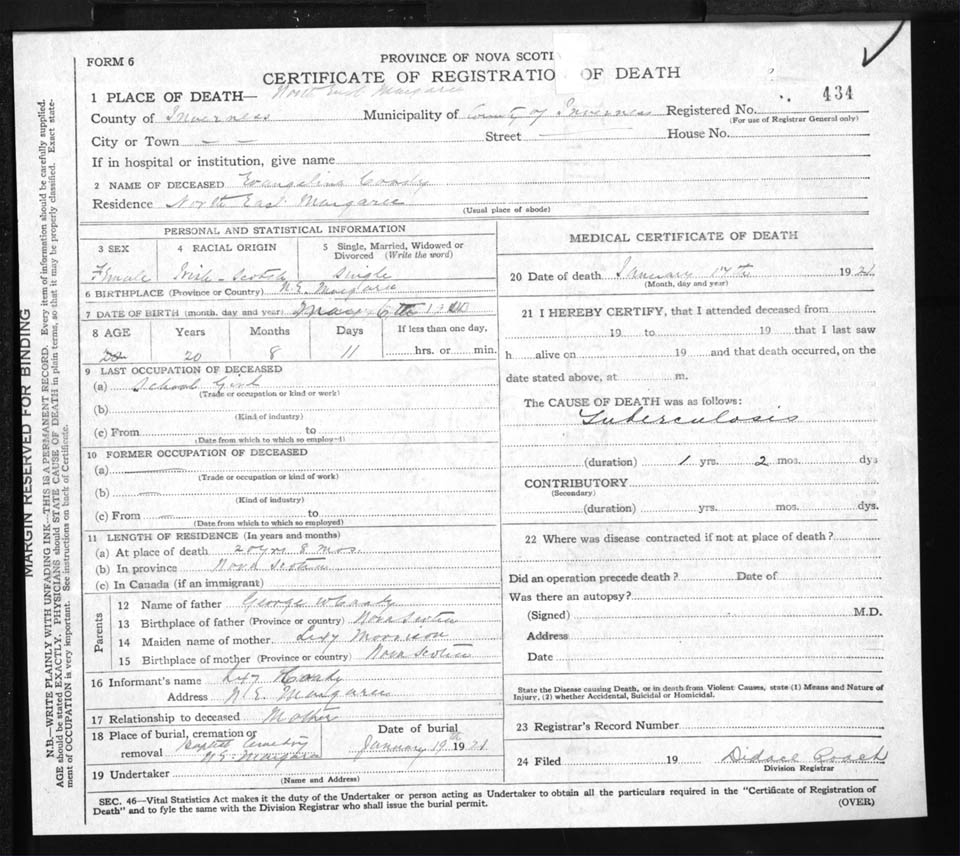 FORM 6
PROVINCE OF NOVA SCOTI
CERTIFICATE OF REGISTRATIO OF DEATH
1 PLACE OF DEATH— North East Margaree
434
County of Inverness Municipality of County of Inverness Registered No.
(For use of Registrar General only)
City or Town — — Street House No.
If in hospital or institution, give name
2 NAME OF DECEASED Evangeline Coady
Residence North East Margaree
(Usual place of abode)
PERSONAL AND STATISTICAL INFORMATION
3 SEX 4 RACIAL ORIGIN 5 Single, Married, Widowed or
Divorced (Write the word)
Female Irish-Scotch Single
6 BIRTHPLACE (Province or Country) N.E. Margaree
7 DATE OF BIRTH (month, day and year) 6th
8 AGE Years Months Days If less than one day,
20 20 8 11 hrs. or min.
9 LAST OCCUPATION OF DECEASED
(a) School Girl
(Trade or occupation or kind or work)
(b)
(Kind of industry)
(c) From to
(Date from which to which so employed)
10 FORMER OCCUPATION OF DECEASED
(a)
(Trade or occupation or kind of work)
(b)
(Kind of industry)
(c) From to
(Date from which to which so employed)
11 LENGTH OF RESIDENCE (In years and months)
(a) At place of death 20 yrs 8 mos
(b) In province Nova Scotia
(c) In Canada (if an immigrant)
Parents
12 Name of father George W Coady
13 Birthplace of father (Province or country) Nova Scotia
14 Maiden name of mother Morrison
15 Birthplace of mother (Province or country) Nova Scotia
16 Informant's name Coady
Address N.E. Margaree
17 Relationship to deceased Mother
18 Place of burial, cremation or
removal Baptist Cemetery
N.E. Margaree
Date of burial
January 19th 1921
19 Undertaker
(Name and Address)
MEDICAL CERTIFICATE OF DEATH
20 Date of death January 17th 1921
(Month, day and year)
21 I HEREBY CERTIFY, that I attended deceased from
19 to 19 that I last saw
h alive on 19 and that death occurred, on the
date stated above, at m.
The CAUSE OF DEATH was as follows:
Tuberculosis
(duration) 1 yrs. 2 mos. dys
CONTRIBUTORY
(Secondary)
(duration) yrs. mos. dys.
22 Where was disease contracted if not at place of death?
Did an operation precede death? Date of
Was there an autopsy?
(Signed) M.D.
Address
Date
State the Disease causing Death, or in death from Violent Causes, state (1) Means and Nature of
Injury, (2) whether Accidental, Suicidal or Homicidal.
23 Registrar's Record Number
24 Filed 19 Didace Roach
Division Registrar
SEC. 46—Vital Statistics Act makes it the duty of the Undertaker or person acting as Undertaker to obtain all the particulars required in the "Certificate of Registration of
Death" and to fyle the same with the Division Registrar who shall issue the burial permit.
(OVER)
MARGIN RESERVED FOR BINDING
N.B.—WRITE PLAINLY WITH UNFADING INK—THIS IS A PERMANENT RECORD. Every item of information should be carefully supplied.
AGE should be stated EXACTLY. PHYSICIANS should STATE CAUSE OF DEATH in plain terms, so that it may be properly classified. Exact state-
ment of OCCUPATION is very important. See instructions on back of Certificate.